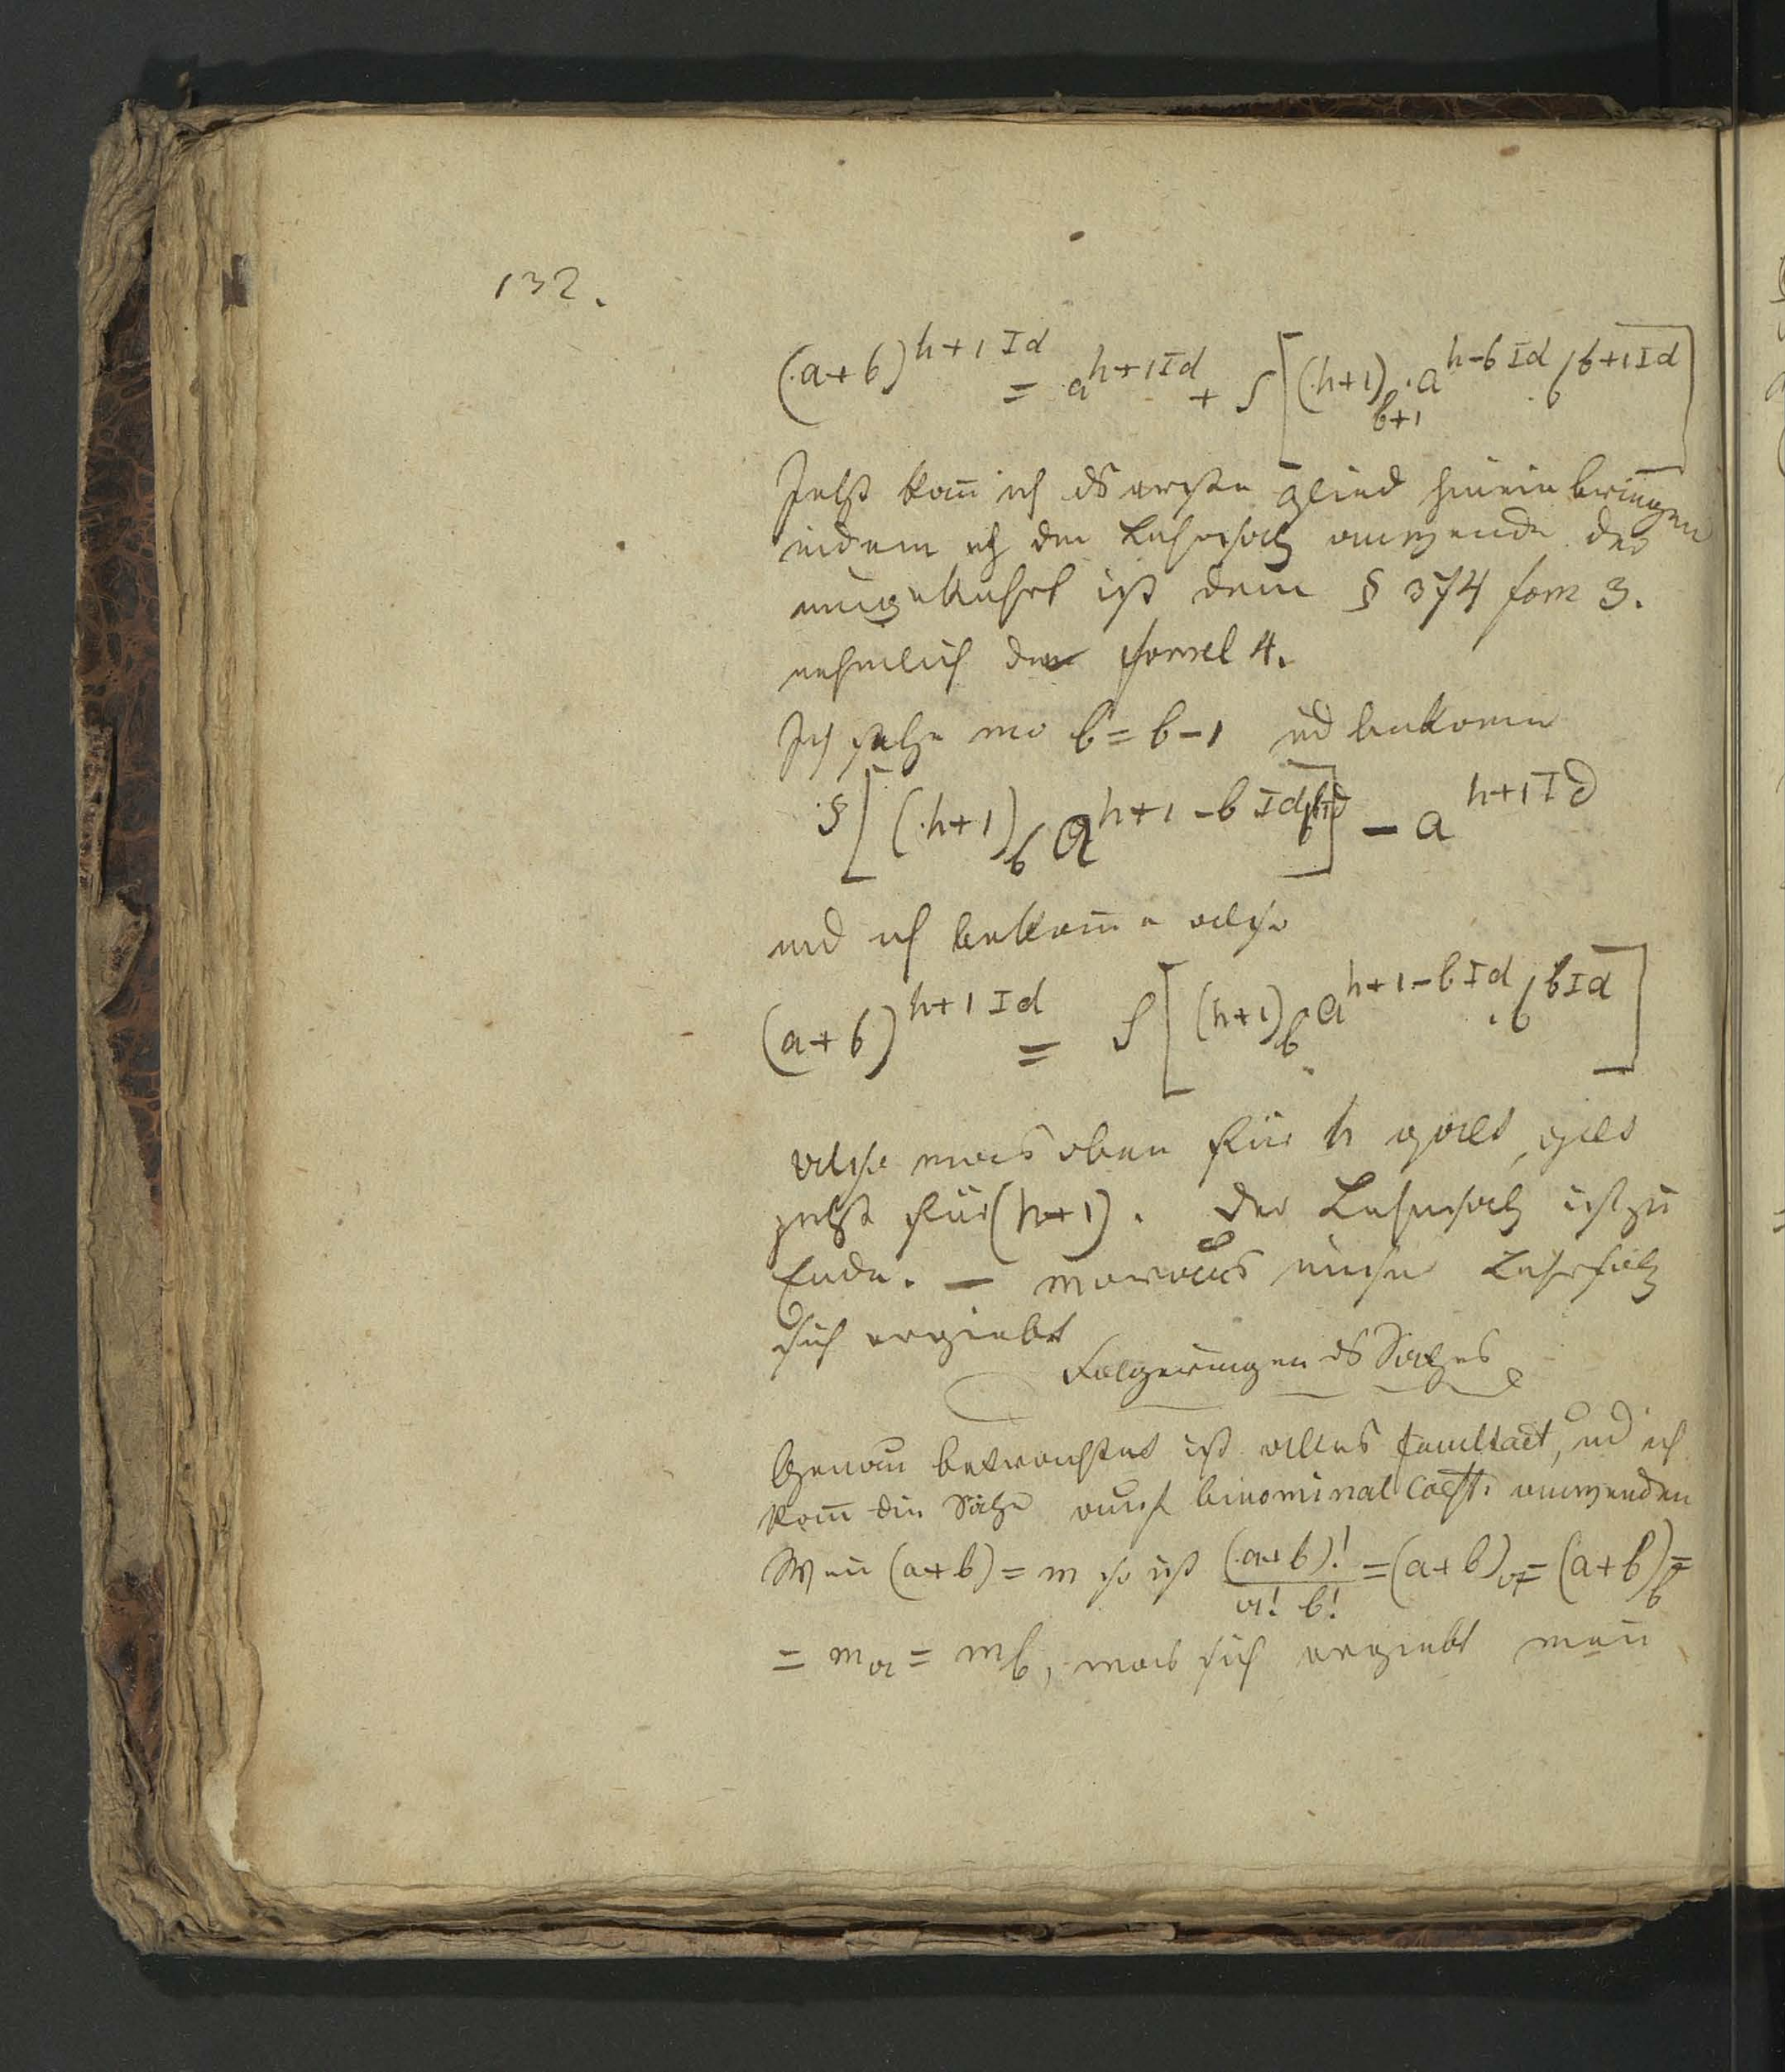 132.
(a+b)^{h+1 I d} = a^{h+1 I d} + S[(h+1)_{b+1}. a^{h-b I d} . b^{b+1 I d}]
Jetzt kañ ich ds erste Glied hineinbringen
indem ich den Lehrsatz anwende der
umgekehrt ist dem § 374 form 3.
nehmlich der formel 4.
Ich setze wo b = b-1 ud bekome
S[(h+1)_b a^{h+1-b I d} b^{b I d}] - a^{h+1 I d}
und ich bekom̄e also
(a+b)^{h+1 I d} = S[(h+1)_b . a^{h+1-b I d} . b^{b I d}]
also was oben für h galt, gilt
jetzt für (h+1). Der Lehrsatz ist zu
Ende. — woraus unser Lehrsatz
sich ergiebt
Folgerungen ds Satzes
Genau betrachtet ist alles facultaet, ud ich
kañ die Sätze auch binominal Coeff. anwenden
Weñ (a+b) = m so ist (a+b)!/a! b! = (a+b)_a = (a+b)_b =
= m_a = m_b, was sich ergiebt weñ